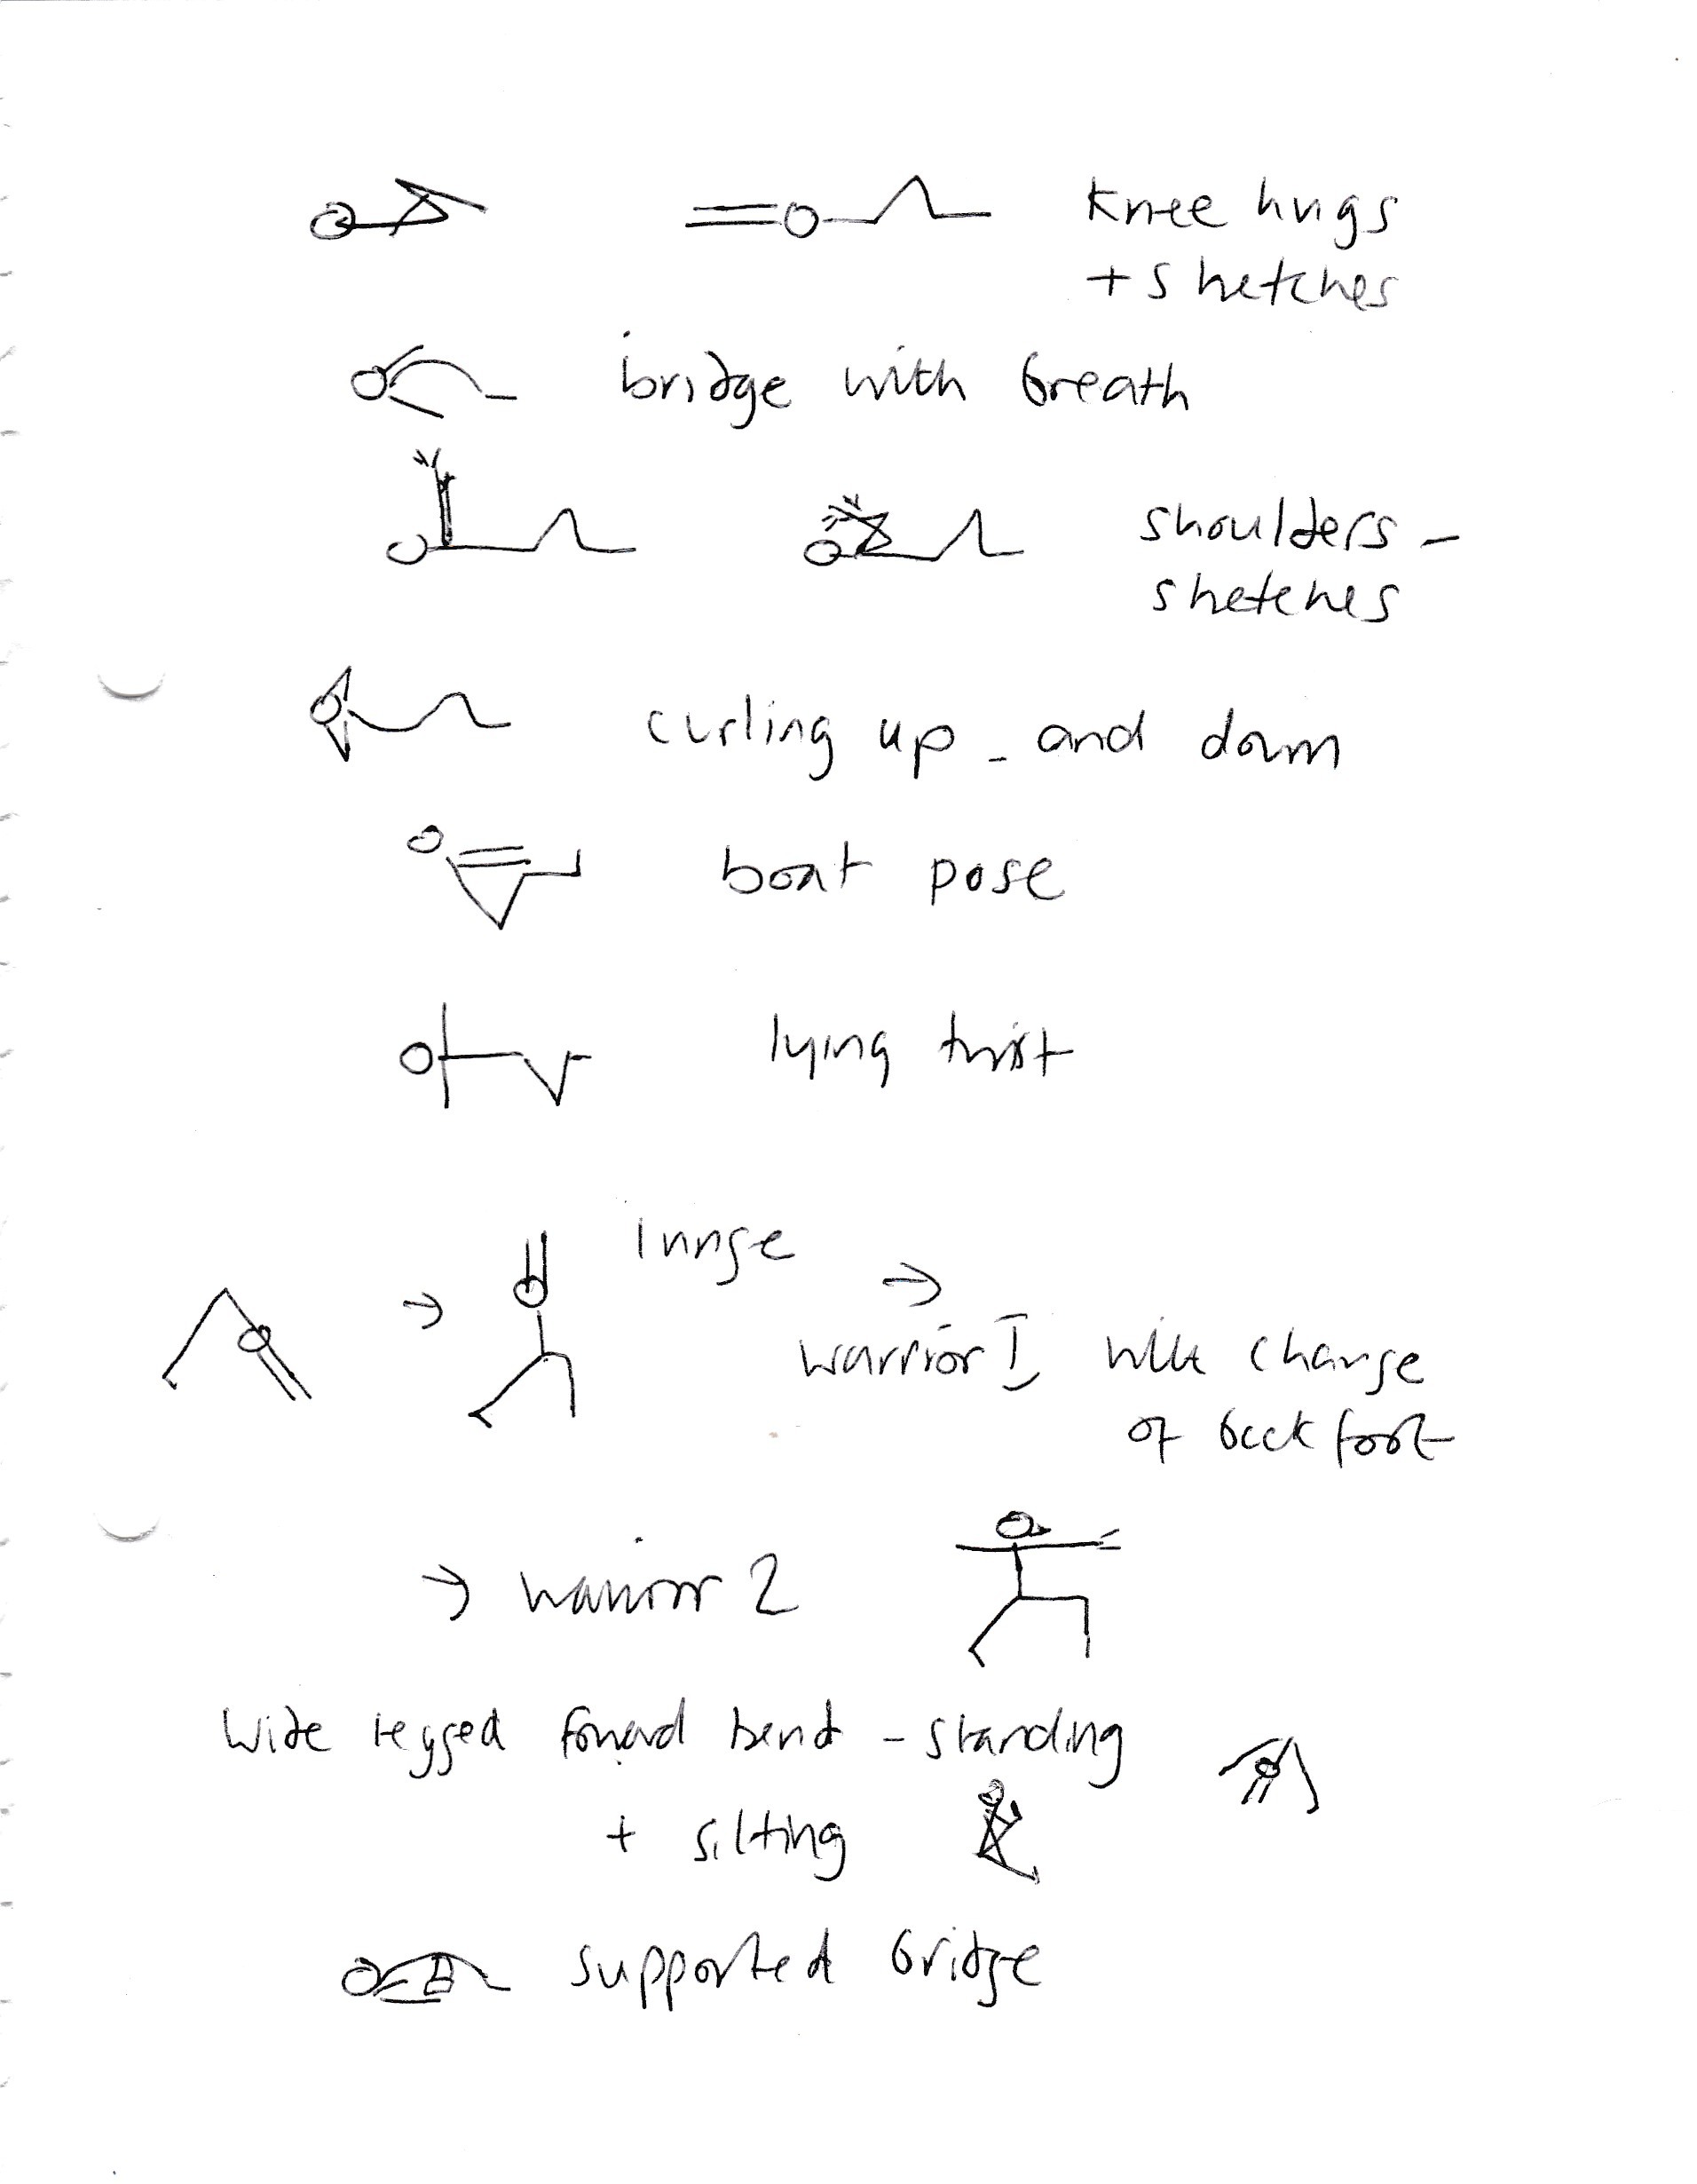 knee hugs
+ stretches
bridge with breath
shoulders -
stretches
curling up - and down
boat pose
lying twist
lunge
→
→
warrior I, with change
of back foot
→ warrior 2
wide legged forward bend - standing
+ sitting
supported bridge